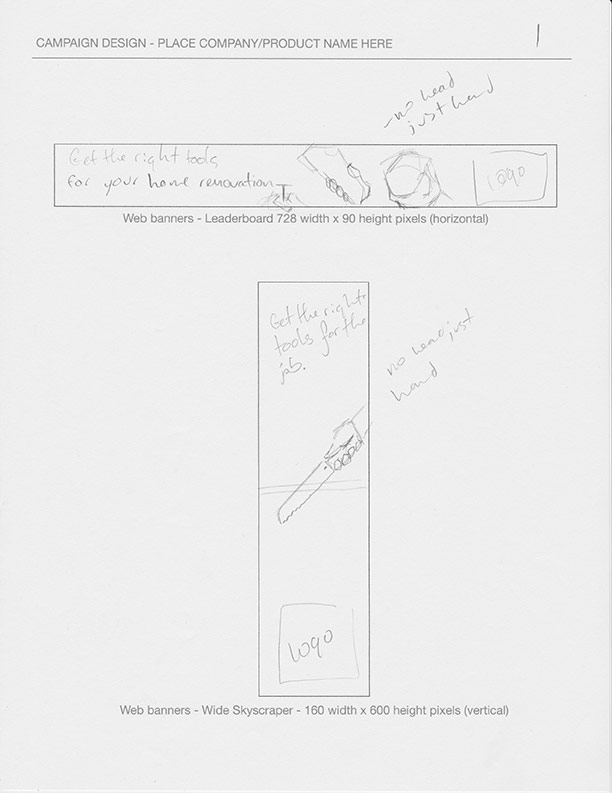 CAMPAIGN DESIGN - PLACE COMPANY/PRODUCT NAME HERE
1
-no head
just hand
Get the right tools
for your home renovation
logo
Web banners - Leaderboard 728 width x 90 height pixels (horizontal)
Get the right
tools for the
job.
no head just
hand
Logo
Web banners - Wide Skyscraper - 160 width x 600 height pixels (vertical)